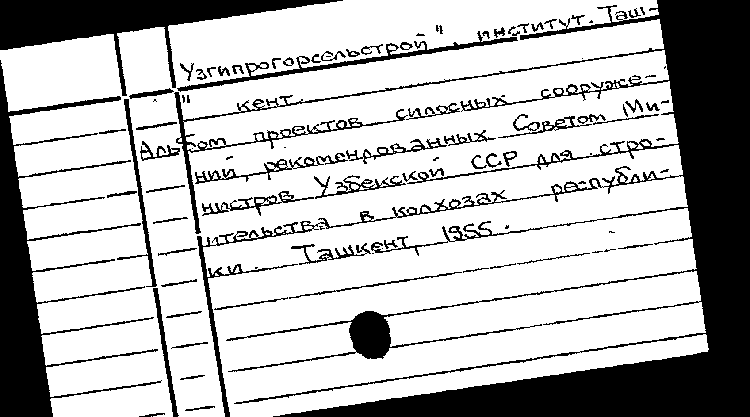 Узгипрогорсельстрой", институт. Таш-
" кент.
Альбом проектов силосных сооруже-
ний, рекомендованных Советом Ми-
нистров Узбекской ССР для стро-
ительства в колхозах республи-
ки. Ташкент, 1955.